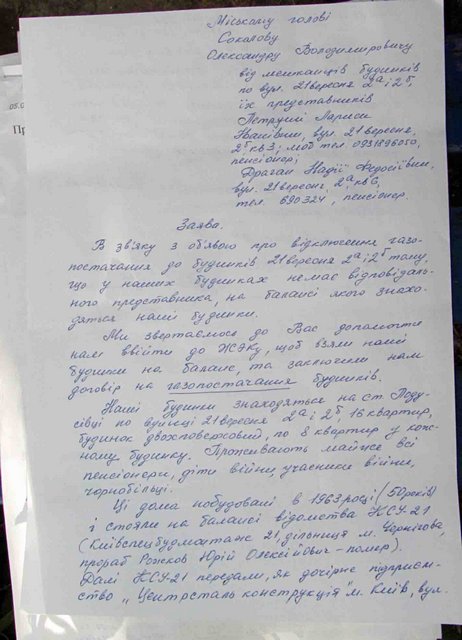 Міському голові
Соколову
Олександру Володимировичу
від мешканців будинків
по вул. 21 вересня 2а і 2б,
їх представників
Петруші Лариси
Іванівни, вул. 21 вересня,
2б кв 3; моб тел. 0931896050,
пенсіонер;
Драган Надії Федосіївни,
вул. 21 вересня, 2а кв 6,
тел. 690324, пенсіонер.
Заява.
В зв'язку з об'явою про відключення газо-
постачання до будинків 21 вересня 2а і 2б тому,
що у наших будинках немає відповідаль-
ного представника, на балансі якого знахо-
дяться наші будинки.
Ми звертаємося до Вас допомогти
нам ввійти до ЖЭКу, щоб взяли наші
будинки на баланс, та заключили нам
договір на газопостачання будинків.
Наші будинки знаходяться на ст. Поду-
сівці по вулиці 21 вересня 2а і 2б 16 квартир,
будинок двохповерховий, по 8 квартир у кож-
ному будинку. Проживають майже всі
пенсіонери, діти війни, учасники війни,
чорнобильці.
Ці дома побудовані в 1963 році (50 років)
і стояли на балансі відомства КСУ-21
(Київспецбудмонтаж 21, дільниця м. Чернігова,
прораб Рожков Юрій Олексійович - помер).
Далі КСУ-21 передали, як дочірнє підприєм-
ство „Центросталь конструкція" м. Київ, вул.
05.0
Пр